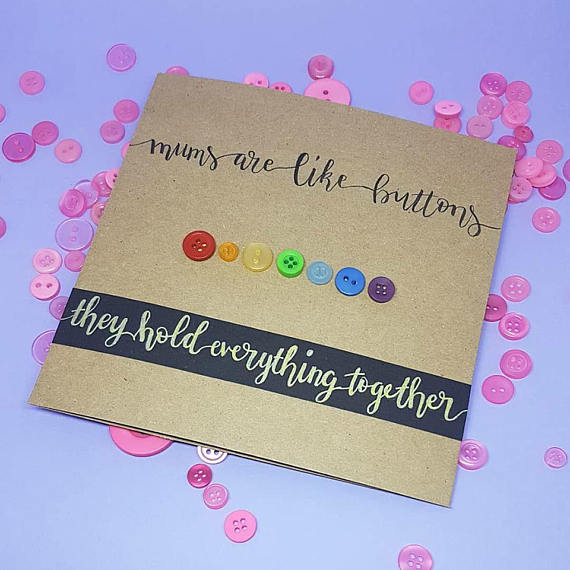 mums are like buttons
they hold everything together